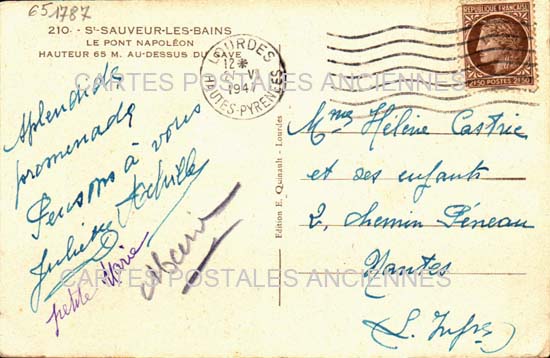 651787
210 - St-SAUVEUR-LES-BAINS
LE PONT NAPOLÉON
HAUTEUR 65 M. AU-DESSUS DU GAVE
LOURDES
12*
VI
194
HAUTES-PYRENEES
RÉPUBLIQUE FRANÇAISE
POSTES
CARTES POSTALES ANCIENNES
Splendide
promenade
Pensons à vous
Juliette Achille
petite Marie
Edition E. Quinault - Lourdes
Mme Hélène Castrie
et ses enfants
2, chemin Péneau
Nantes
(L. Infre)
CARTES POSTALES ANCIENNES